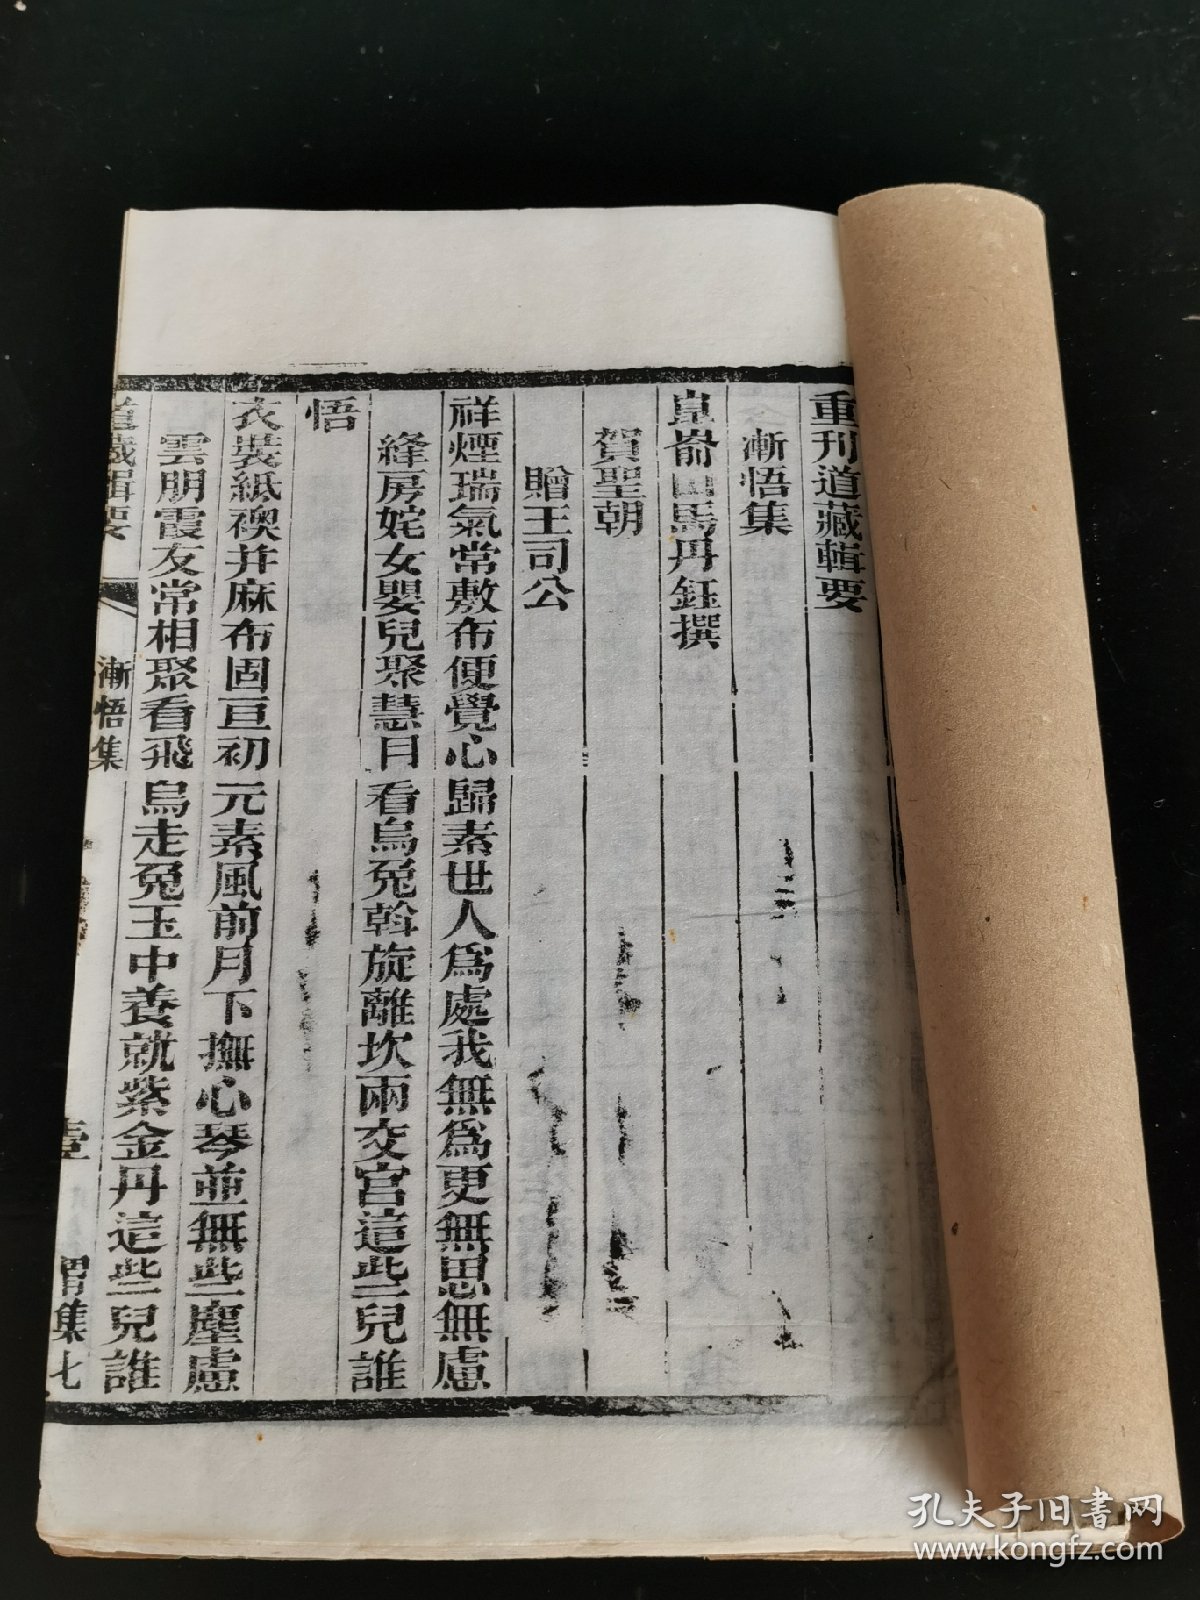 重刊道藏輯要
漸悟集
崑崳山馬丹鈺撰
賀聖朝
贈王司公
祥煙瑞氣常敷布便覺心歸素世人為處我無為更無思無慮
絳房姹女嬰兒聚慧日看烏兔斡旋離坎兩交宮這些兒誰
悟
衣裝紙襖并麻布固亘初元素風前月下撫心琴並無些塵慮
雲朋霞友常相聚看飛烏走兔玉中養就紫金丹這些兒誰
道藏輯要
漸悟集
壹
胃集七
孔夫子旧书网
www.kongfz.com